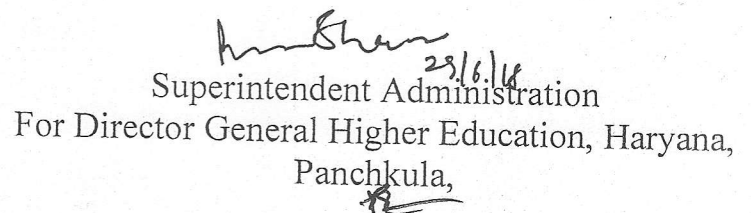 29/6/18
Superintendent Administration
For Director General Higher Education, Haryana,
Panchkula,